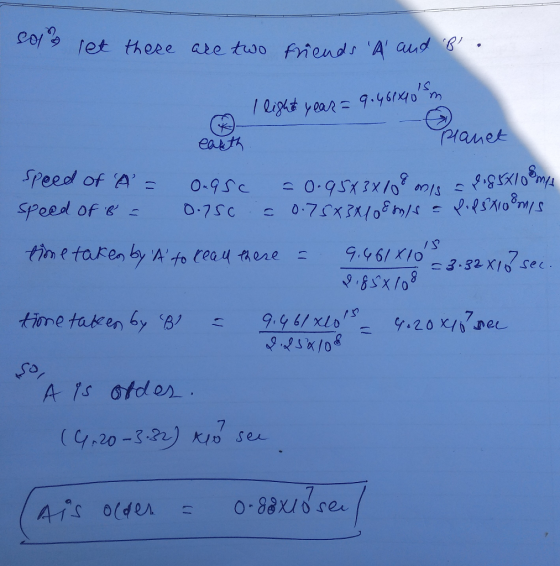 Solⁿ→ let there are two friends 'A' and 'B'.
1 light year = 9.461×10¹⁵m
earth Planet
Speed of 'A' = 0.95c = 0.95×3×10⁸ m/s = 2.85×10⁸m/s
Speed of 'B' = 0.75c = 0.75×3×10⁸m/s = 2.25×10⁸m/s
time taken by 'A' to reach there = 9.461×10¹⁵ / 2.85×10⁸ = 3.32×10⁷ sec.
time taken by 'B' = 9.461×10¹⁵ / 2.25×10⁸ = 4.20×10⁷ sec
So,
A is older.
(4.20-3.32) ×10⁷ sec.
A is older = 0.88×10⁷ sec